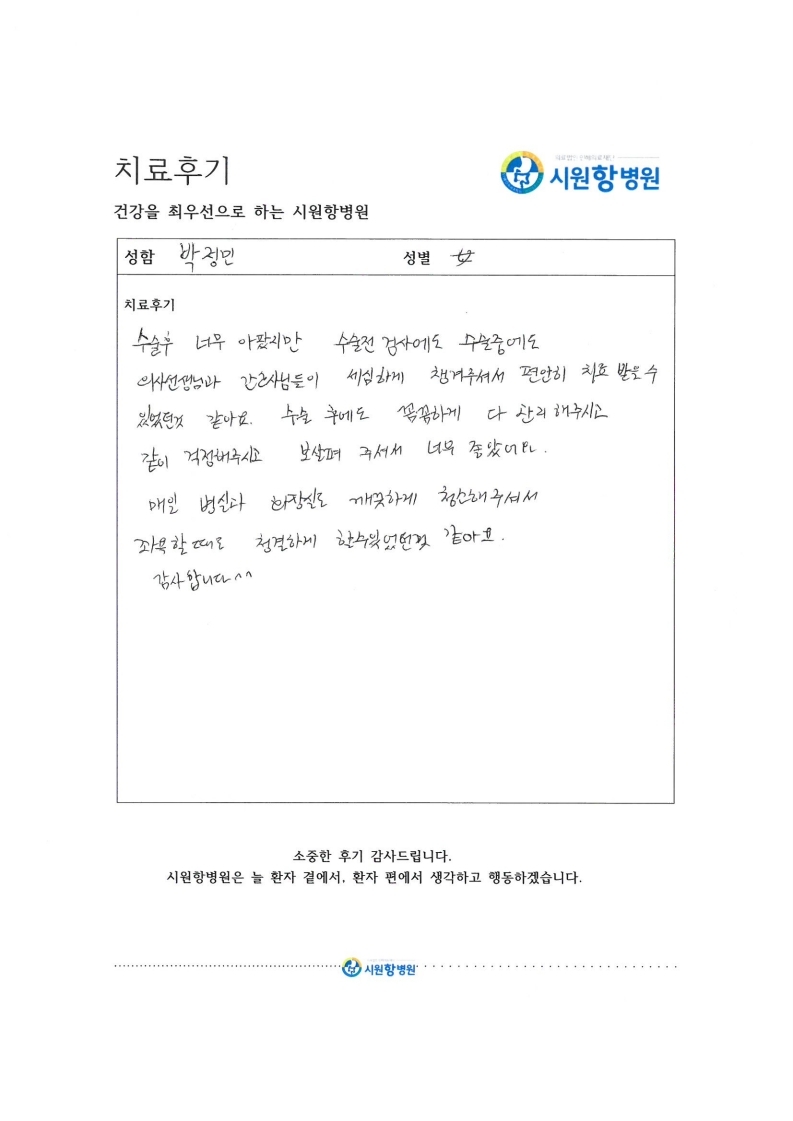 치료후기
시원항병원
건강을 최우선으로 하는 시원항병원
성함 박정민 성별 女
치료후기
수술후 너무 아팠지만 수술전 검사에도 수술중에도
의사선생님과 간호사님들이 세심하게 챙겨주셔서 편안히 치료 받을수
있었던것 같아요. 수술 후에도 꼼꼼하게 다 관리해주시고
같이 걱정해주시고 보살펴 주셔서 너무 좋았어요.
매일 병실과 화장실도 깨끗하게 청소해주셔서
좌욕할때도 청결하게 할수있었던것 같아요.
감사합니다^^
소중한 후기 감사드립니다.
시원항병원은 늘 환자 곁에서, 환자 편에서 생각하고 행동하겠습니다.
시원항병원